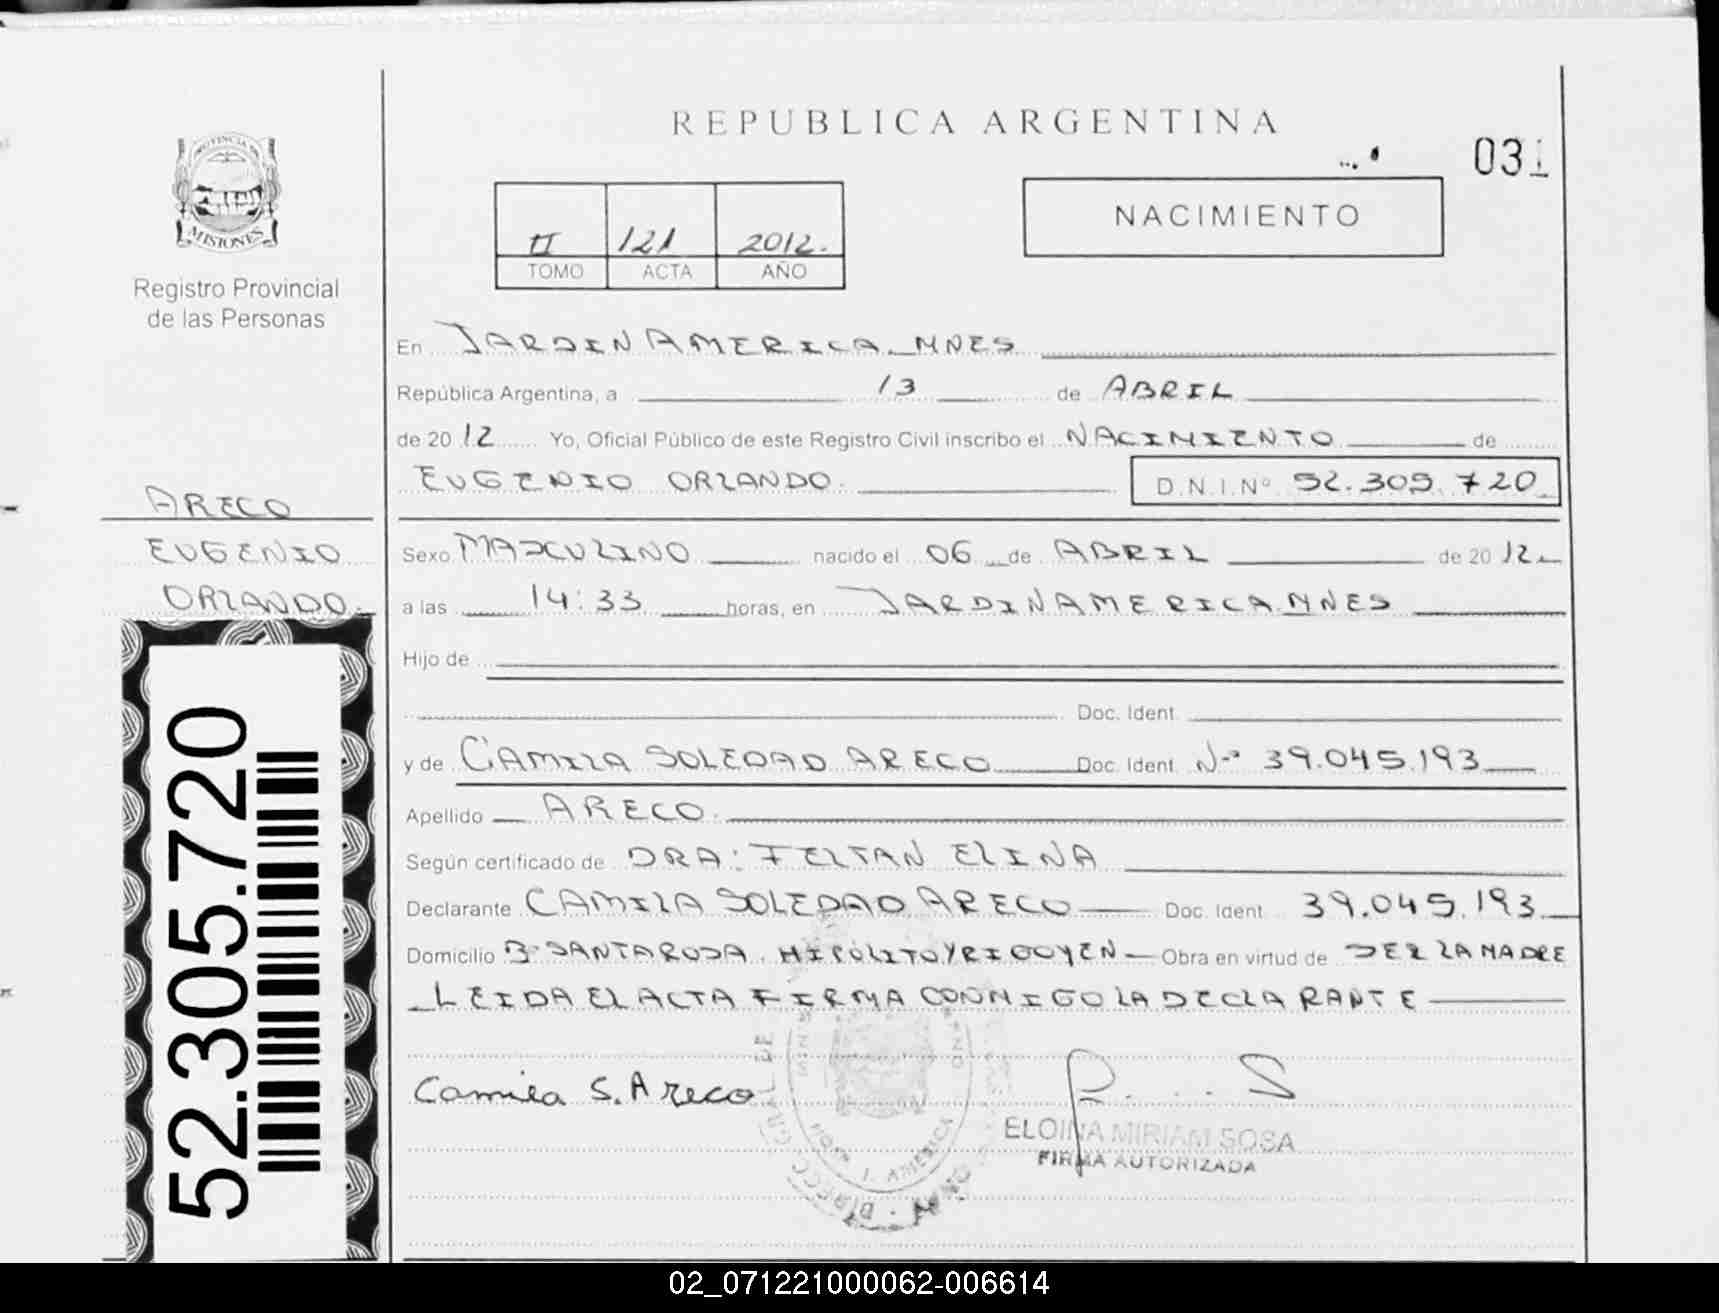 REPUBLICA ARGENTINA
031
PROVINCIA DE
MISIONES
Registro Provincial
de las Personas
II 121 2012.
TOMO ACTA AÑO
NACIMIENTO
En JARDIN AMERICA MNES
República Argentina, a 13 de ABRIL
de 2012 Yo, Oficial Público de este Registro Civil inscribo el NACIMIENTO de
EUGENIO ORLANDO. D.N.I.Nº 52.305.720
ARECO
EUGENIO
ORLANDO.
Sexo MASCULINO nacido el 06 de ABRIL de 2012
a las 14:33 horas, en JARDIN AMERICA. MNES
Hijo de
Doc. Ident.
y de CAMILA SOLEDAD ARECO Doc. Ident. Nº 39.045.193
Apellido ARECO.
Según certificado de DRA: FELTAN ELINA
Declarante CAMILA SOLEDAD ARECO Doc. Ident. 39.045.193
Domicilio Bº SANTA ROSA. HIPOLITO YRIGOYEN Obra en virtud de SER LA MADRE
LEIDA EL ACTA FIRMA CONMIGO LA DECLARANTE
Camila S. Areco
ELOINA MIRIAM SOSA
FIRMA AUTORIZADA
52.305.720
02_071221000062-006614